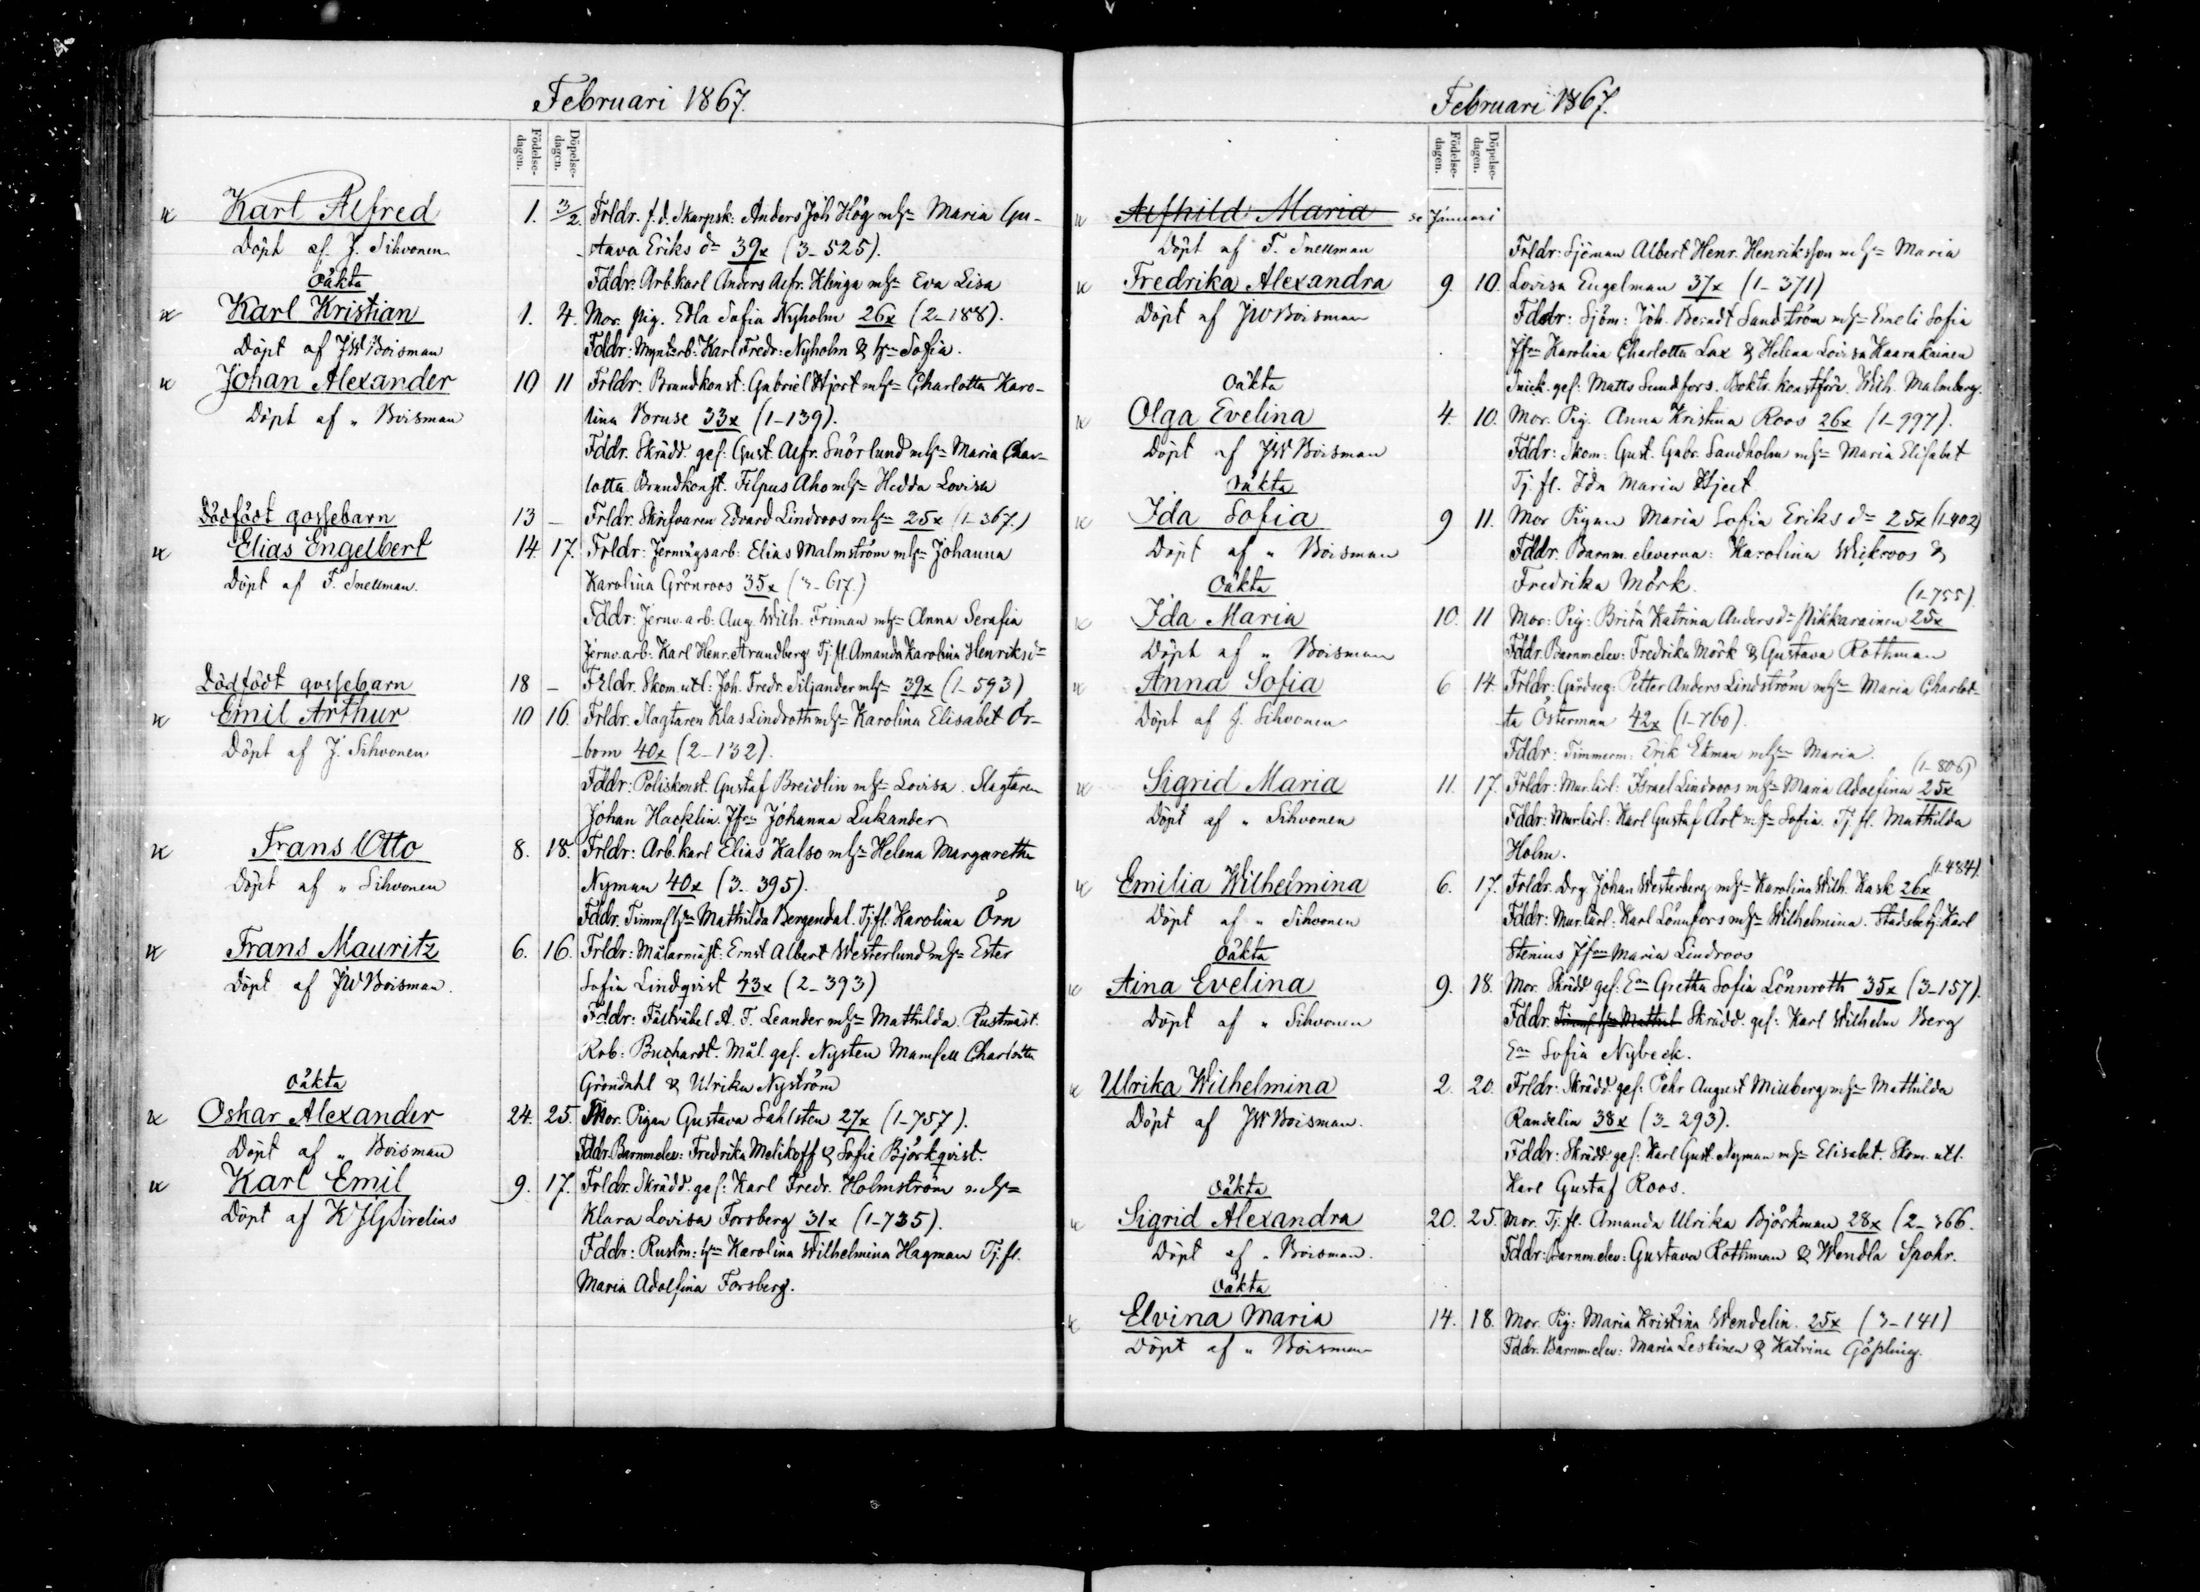 Februari 1867.
Födelse-dagen. Döpelse-dagen.
Karl Alfred 1. 3/2. Frldr. f.d. Skarpsk: Anders Joh Hög mhs Maria Gu-
Döpt af J. Sihvonen -stava Eriks dr 39x (3-525).
Fddr: Arb.karl Anders Alfr. Klinga mhs Eva Lisa
Oäkta
Karl Kristian 1. 4. Mor. Pig. Edla Sofia Nyholm 26x (2-188).
Döpt af JW Boisman Fddr: Mynterb: Karl Fredr: Nyholm & hs Sofia.
Johan Alexander 10 11 Frldr: Brandkonst: Gabriel Hjort mhs Charlotta Karo-
Döpt af " Boisman lina Bruse 33x (1-139).
Fddr. Skrädd. ges: Gust. Alfr. Snörlund mhs Maria Char-
lotta Brandkonst. Filpus Aho mhs Hedda Lovisa
Dödfödt gossebarn 13 — Frldr. Skrifvaren Edvard Lindroos mhs 25x (1-367.)
Elias Engelbert 14 17. Frldr: Jernvägsarb: Elias Malmström mhs Johanna
Döpt af F. Snellman. Karolina Grönroos 35x (3-617.)
Fddr: Jernv.arb: Aug. Wilh. Friman mhs Anna Serafia
Jernv.arb: Karl Henr. Strandberg Tj.fl. Amanda Karolina Henriksdr
Dödfödt gossebarn 18 — Frldr. Skom.utl: Joh. Fredr. Siljander mhs 39x (1-593)
Emil Arthur 10 16. Frldr. Slagtaren Klas Lindroth mhs Karolina Elisabet Ör-
Döpt af J. Sihvonen -bom 40x (2-132).
Fddr: Poliskonst. Gustaf Breidlin mhs Lovisa. Slagtaren
Johan Hacklin. Jfrn Johanna Lukander
Frans Otto 8. 18. Frldr: Arb.karl Elias Kalso mhs Helena Margaretha
Döpt af " Sihvonen Nyman 40x (3-395).
Fddr. Timm hs Mathilda Bergendal. Tj.fl. Karolina Örn
Frans Mauritz 6. 16. Frldr: Målarmäst: Ernst Albert Westerlund mhs Ester
Döpt af JW Boisman. Sofia Lindqvist 43x (2-393)
Fddr: Fältväbel A. F. Leander mhs Mathilda. Rustmäst.
Rob: Buchardt. Mål. ges. Nysten Mamsell Charlotta
Gröndahl & Ulrika Nyström
Oäkta
Oskar Alexander 24. 25. Mor. Pigan Gustava Sahlsten 27x (1-757).
Döpt af " Boisman Fddr. Barnm.elev: Fredrika Melikoff & Sofie Björkqvist.
Karl Emil 9. 17. Frldr. Skrädd. ges: Karl Fredr. Holmström mhs
Döpt af K J G Sirelius Klara Lovisa Forsberg 31x (1-735).
Fddr: Rustm: hs Karolina Wilhelmina Hagman Tj.fl.
Maria Adolfina Forsberg.
Februari 1867.
Födelse-dagen. Döpelse-dagen.
Alfhild Maria se Januari
Döpt af F. Snellman Frldr: Sjöman Albert Henr. Henriksson mhs Maria
Fredrika Alexandra 9. 10. Lovisa Engelman 37x (1-371)
Döpt af JW Boisman Fddr: Sjöm: Joh. Berndt Sandström mhs Emeli Sofia
Jfrn Karolina Charlotta Lax & Helena Lovisa Kaarakainen
Snick. ges: Matts Sundfors. Boktr. konstför. Wilh. Malmberg.
Oäkta
Olga Evelina 4. 10. Mor. Pig. Anna Kristina Roos 26x (1-997).
Döpt af JW Boisman Fddr: Skom: Gust. Gabr. Sandholm mhs Maria Elisabet
Tj. fl. Ida Maria Hjert
Oäkta
Ida Sofia 9 11. Mor Pigan Maria Sofia Eriks dr 25x (1-402)
Döpt af " Boisman Fddr. Barnm. eleverna: Karolina Wickroos &
Fredrika Mörk.
Oäkta (1-755).
Ida Maria 10. 11 Mor: Pig: Brita Katrina Anders dr Pikkarainen 25x
Döpt af " Boisman Fddr. Barnm.elev: Fredrika Mörk & Gustava Rothman
Anna Sofia 6 14. Frldr: Gårdseg: Petter Anders Lindström mhs Maria Charlot-
Döpt af J. Sihvonen -ta Österman 42x (1-760).
Fddr: Timmerm: Erik Ekman mhs Maria.
(1-806)
Sigrid Maria 11. 17. Frldr: Mur.lärl: Israel Lindroos mhs Maria Adolfina 25x
Döpt af " Sihvonen Fddr: Mur.lärl: Karl Gustaf Art mhs Sofia. Tj. fl. Mathilda
Holm.
(1-484).
Emilia Wilhelmina 6. 17. Frldr. Drg Johan Westerberg mhs Karolina Wilh. Kask 26x
Döpt af " Sihvonen Fddr: Mur.lärl: Karl Lönnfors mhs Wilhelmina. Stadsbetj: Karl
Stenius Jfrn Maria Lindroos
Oäkta
Aina Evelina 9. 18. Mor. Skrädd ges: En Gretha Sofia Lönnroth 35x (3-157).
Döpt af " Sihvonen Fddr. Timm hs Mathil Skrädd. ges: Karl Wilhelm Berg
En Sofia Nybeck.
Ulrika Wilhelmina 2. 20. Frldr: Skrädd. ges: Pehr August Miuberg mhs Mathilda
Döpt af JW Boisman. Randelin 38x (3-293).
Fddr: Skrädd. ges: Karl Gust. Nyman mhs Elisabet. Skom. utl.
Karl Gustaf Roos.
Oäkta
Sigrid Alexandra 20. 25. Mor. Tj. fl. Amanda Ulrika Björkman 28x (2-366.
Döpt af " Boisman. Fddr: Barnm.elev: Gustava Rothman & Wendla Spohr.
Oäkta
Elvina Maria 14. 18. Mor. Pig: Maria Kristina Wendelin. 25x (3-141)
Döpt af " Boisman Fddr. Barnm.elev: Maria Leskinen & Katrina Gösling.